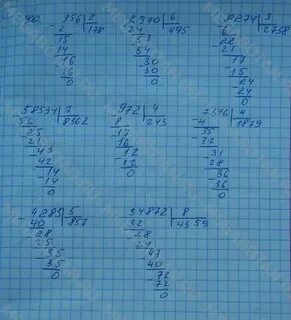 400. 356 | 2
- 2 | 178
15
14
16
16
0
2970 | 6
24 | 495
57
54
30
30
0
8274 | 3
- 6 | 2758
22
21
17
15
24
24
0
58534 | 7
56 | 8362
25
21
43
42
14
14
0
972 | 4
8 | 243
17
16
12
12
0
7516 | 4
- 4 | 1879
35
32
31
28
36
36
0
4285 | 5
40 | 857
28
25
35
35
0
34872 | 8
32 | 4359
28
24
47
40
72
72
0